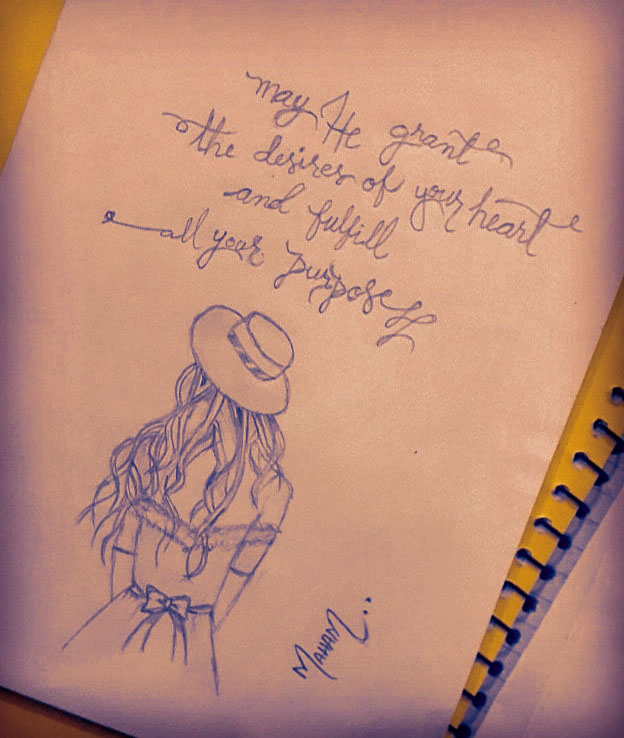 may He grant
the desires of your heart
and fulfill
all your purpose
MAHAM..